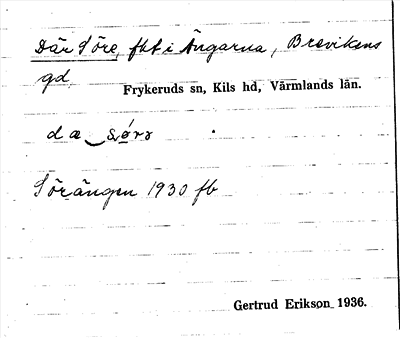 Där Söre, fht i Ängarna, Brevikens
gd
Frykeruds sn, Kils hd, Värmlands län.
dæ‿sørə
Sörängen 1930 fb
Gertrud Erikson 1936.